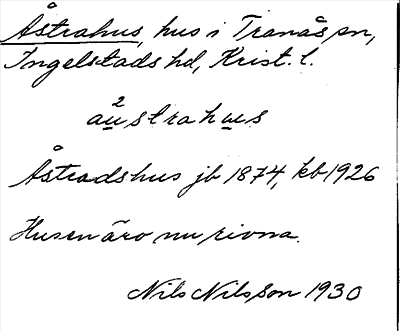 Åstrahus, hus i Tranås sn,
Ingelstads hd, Krist. l.
au̲²strahu̲s
Åstradshus jb 1874, kb 1926
Husen äro nu rivna.
Nils Nilsson 1930